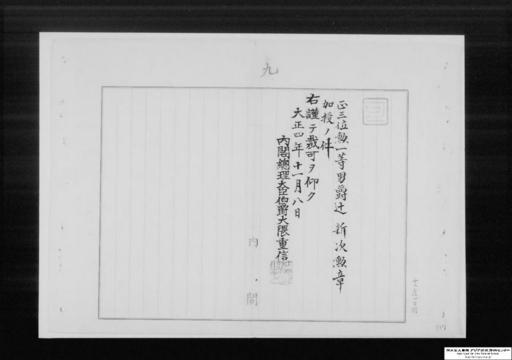 九
正三位勲一等男爵辻新次勲章
加授ノ件
右謹テ裁可ヲ仰ク
大正四年十一月八日
内閣総理大臣伯爵大隈重信
内閣